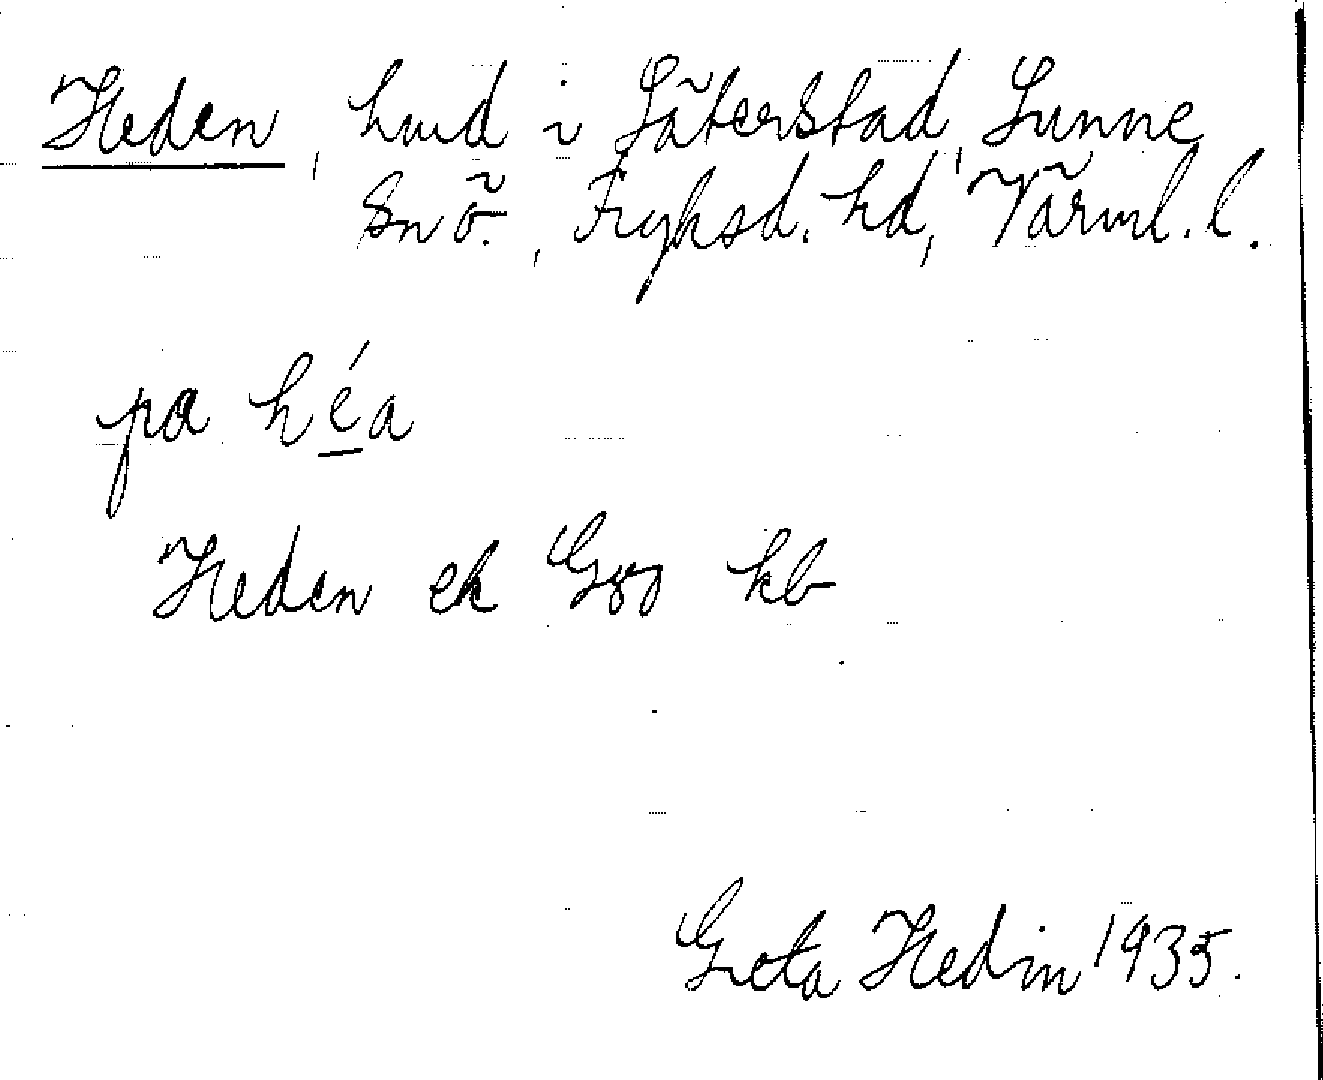 Heden, hmd i Säterstad, Sunne
sn ö., Fryksd. hd, Värml. l.
pa héa
Heden ek Gzz kb
Greta Hedin 1935.